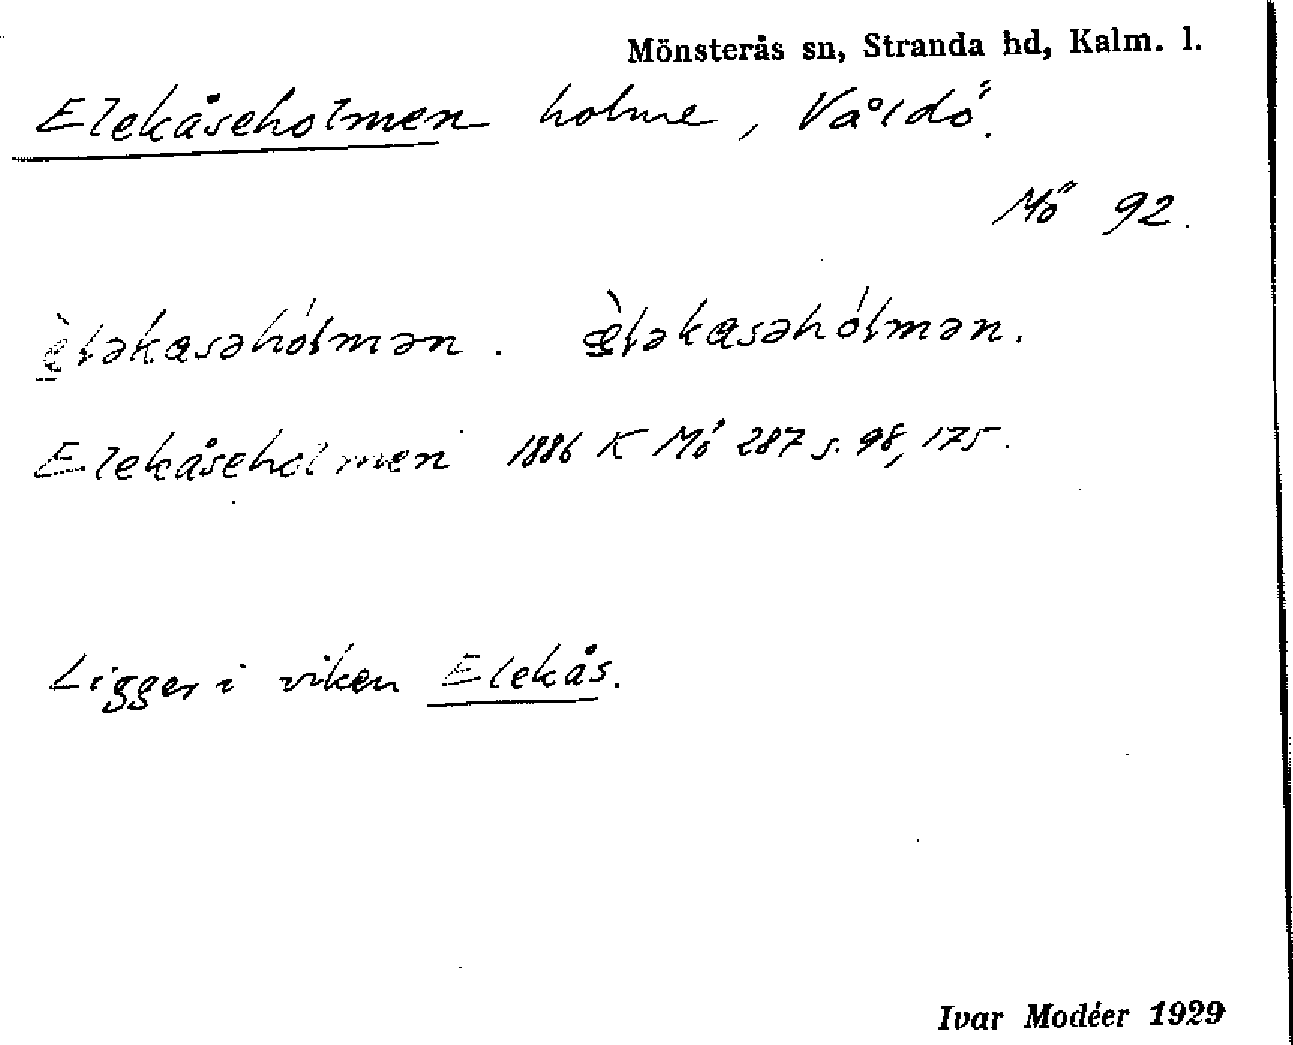 Mönsterås sn, Stranda hd, Kalm. l.
Elekåseholmen holme, Våldö.
Mö 92.
è̱ləkasəhólmən. æ̀ləkasəhólmən.
Elekåseholmen 1886 K Mö 287 s. 98, 175.
Ligger i viken Elekås.
Ivar Modéer 1929